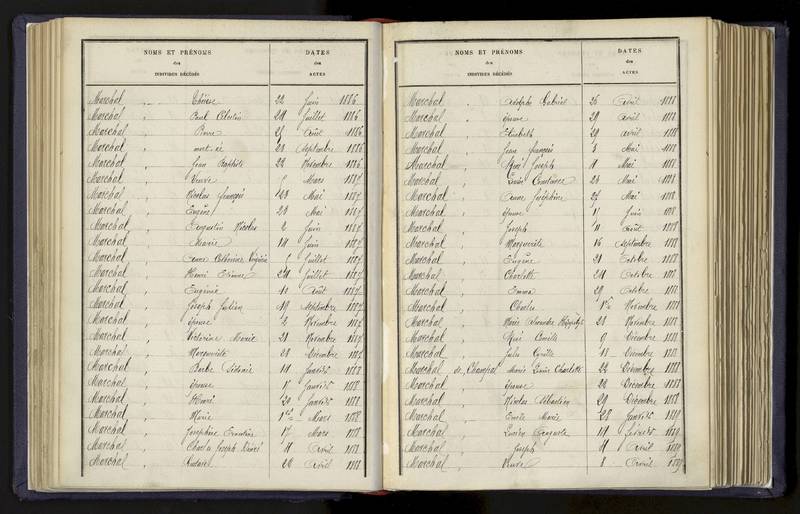 NOMS ET PRÉNOMS
des
INDIVIDUS DÉCÉDÉS
DATES
des
ACTES
Marchal Thérèse 22 Juin 1886
Marchal Paul 24 Juillet 1886
Marchal Pierre 25 Août 1886
Marchal mort-né 20 Septembre 1886
Marchal Jean Baptiste 22 Novembre 1886
Marchal Veuve Mars 1887
Marchal Nicolas François Mai 1887
Marchal Eugène 20 Mai 1887
Marchal Augustin Nicolas 2 Juin 1887
Marchal Marie 14 Juin 1887
Marchal Anne Catherine Virginie Juillet 1887
Marchal Henri Etienne 24 Juillet 1887
Marchal Eugénie Août 1887
Marchal Joseph Julien 19 Septembre 1887
Marchal épouse 2 Novembre 1887
Marchal Victorine Marie 21 Novembre 1887
Marchal Marguerite Décembre 1887
Marchal Barbe Janvier 1888
Marchal épouse Janvier 1888
Marchal Henri 20 Janvier 1888
Marchal Marie 1er Mars 1888
Marchal Joséphine 17 Mars 1888
Marchal Charles Joseph Avril 1888
Marchal 20 Avril 1888
NOMS ET PRÉNOMS
des
INDIVIDUS DÉCÉDÉS
DATES
des
ACTES
Marchal Adolphe Gabriel 26 Avril 1888
Marchal épouse 29 Avril 1888
Marchal Elisabeth 29 Avril 1888
Marchal Jean François 8 Mai 1888
Marchal René Joseph 11 Mai 1888
Marchal Louis Constance Mai 1888
Marchal Anne Joséphine 25 Mai 1888
Marchal épouse 11 Juin 1888
Marchal Joseph 11 Août 1888
Marchal Marguerite 16 Septembre 1888
Marchal Eugène 21 Octobre 1888
Marchal Charlotte 24 Octobre 1888
Marchal Emma 29 Octobre 1888
Marchal Charles Novembre 1888
Marchal Marie Alexandre Hippolyte Novembre 1888
Marchal René Camille 9 Décembre 1888
Marchal Jules Décembre 1888
Marchal de Marie Louise Charlotte 22 Décembre 1888
Marchal épouse 22 Décembre 1888
Marchal Nicolas Sébastien 29 Décembre 1888
Marchal Emile Marie 28 Janvier 1889
Marchal Lucien Auguste 14 Février 1889
Marchal Joseph Avril 1889
Marchal Veuve 8 Avril 1889